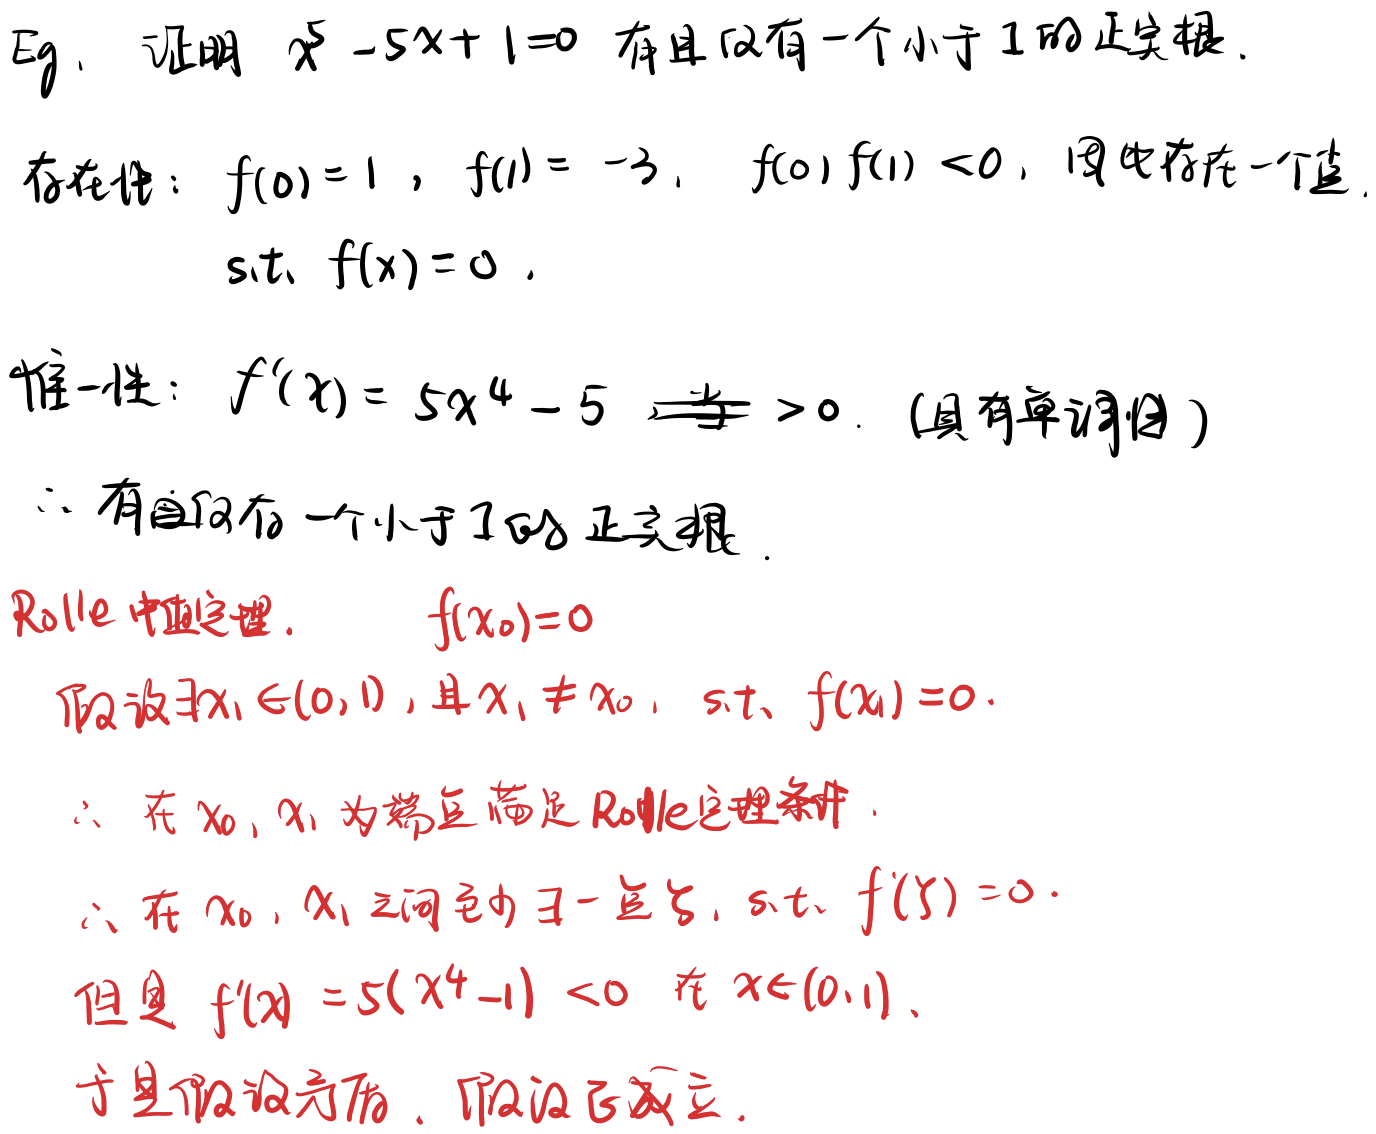 Eg. 证明 x⁵ -5x+1=0 有且仅有一个小于1的正实根.
存在性: f(0)=1, f(1)= -3, f(0) f(1) <0, 因此存在一个值.
s.t. f(x)=0.
惟一性: f'(x)= 5x⁴ - 5 >0. (具有单调性)
∴ 有且仅有一个小于1的正实根.
Rolle 中值定理. f(x₀)=0
假设∃x₁∈(0,1), 且x₁≠x₀, s.t. f(x₁)=0.
∴ 在 x₀, x₁ 为端点满足Rolle定理条件.
∴ 在 x₀, x₁ 之间至少∃一点ξ, s.t. f'(ξ)=0.
但是 f'(x) =5(x⁴-1) <0 在 x∈(0,1).
于是假设矛盾. 假设
立.